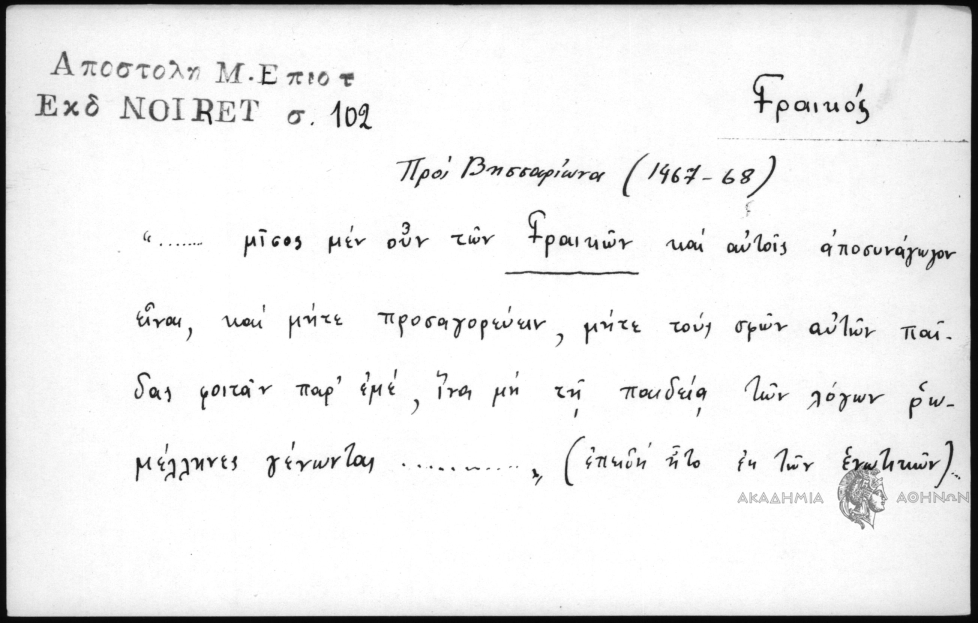 Αποστολη Μ. Επιστ
Εκδ NOIRET σ. 102
Γραικός
Πρός Βησσαρίωνα (1467-68)
“....... μῖσος μέν οὖν τῶν Γραικῶν καί αὐτοῖς ἀποσυνάγωγον
εἶναι, καί μήτε προσαγορεύειν, μήτε τούς σφῶν αὐτῶν παῖ-
δας φοιτᾶν παρ' ἐμέ, ἵνα μή τῇ παιδείᾳ τῶν λόγων ῥω-
μέλληνες γένωνται ..........„ (ἐπειδή ἦτο ἐκ τῶν ἑνωτικῶν)...
ΑΚΑΔΗΜΙΑ ΑΘΗΝΩΝ